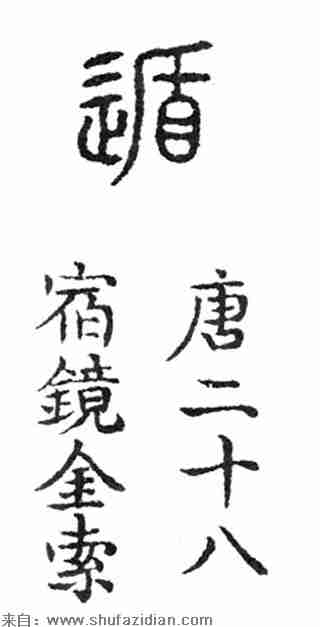 遁
唐二十八
宿鏡金索
来自：www.shufazidian.com